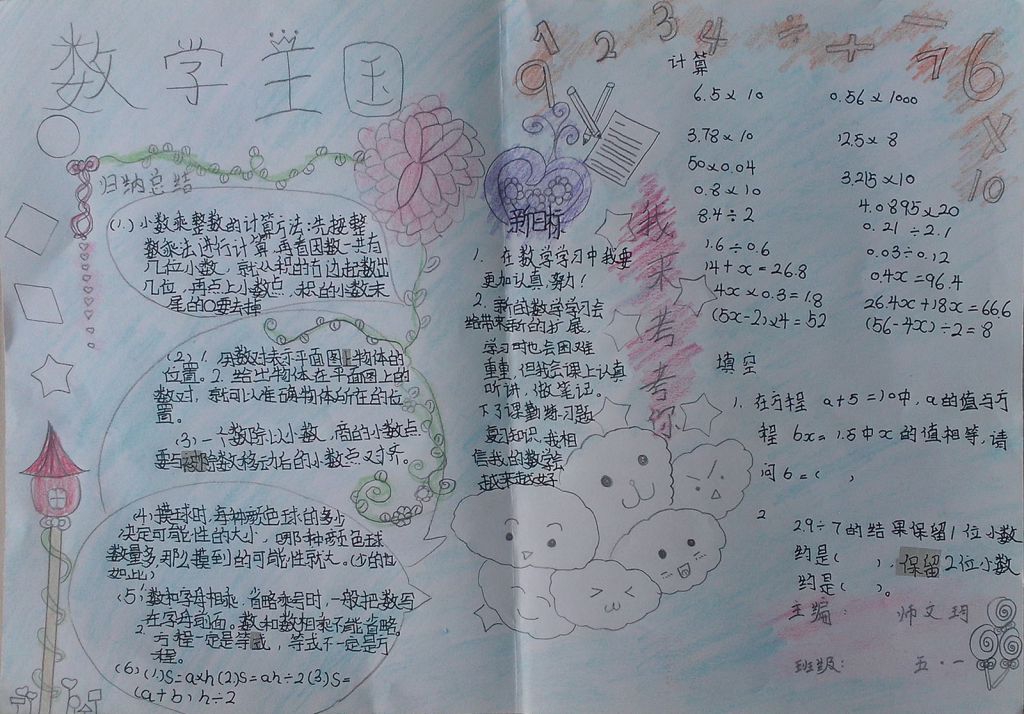 数学王国
归纳总结
(1.) 小数乘整数的计算方法:先按整
数乘法进行计算,再看因数一共有
几位小数,就从积的右边起数出
几位,再点上小数点,积的小数末
尾的0要去掉
(2) 1. 用数对表示平面图上物体的
位置。2. 给出物体在平面图上的
数对,就可以准确物体所在的位
置。
(3) 一个数除以小数,商的小数点
要与被除数移动后的小数点对齐。
(4) 摸球时,每种颜色球的多少
决定可能性的大小,哪种颜色球
数量多,那么摸到的可能性就大。(少的也
如此)
(5) 1. 数和字母相乘,省略乘号时,一般把数写
在字母前面。数和数相乘不能省略。
2. 方程一定是等式,等式不一定是方
程。
(6) (1)S=axh (2)S=ah÷2 (3)S=
(a+b)h÷2
新目标
1. 在数学学习中我要
更加认真,努力!
2. 新的数学学习会
给带来新的扩展,
学习时也会困难
重重,但我会课上认真
听讲,做笔记。
下了课勤练习题
复习知识,我相
信我的数学会
越来越好
我来考考你
1 2 3 4 ÷ + - 7 6
9 × 10
计算
6.5×10 0.56×1000
3.78×10 12.5×8
50×0.04 3.215×10
0.8×10 4.0895×20
8.4÷2 0.21÷2.1
1.6÷0.6 0.03÷0.12
14+x=26.8 0.4x=96.4
4x×0.3=1.8 26.4x+18x=666
(5x-2)×4=52 (56-4x)÷2=8
填空
1. 在方程 a+5=10中,a的值与方
程 bx=1.5中x的值相等,请
问b=( ,
2
29÷7的结果保留1位小数
约是( ),保留2位小数
约是( )。
主编: 师文玥
班级: 五·一